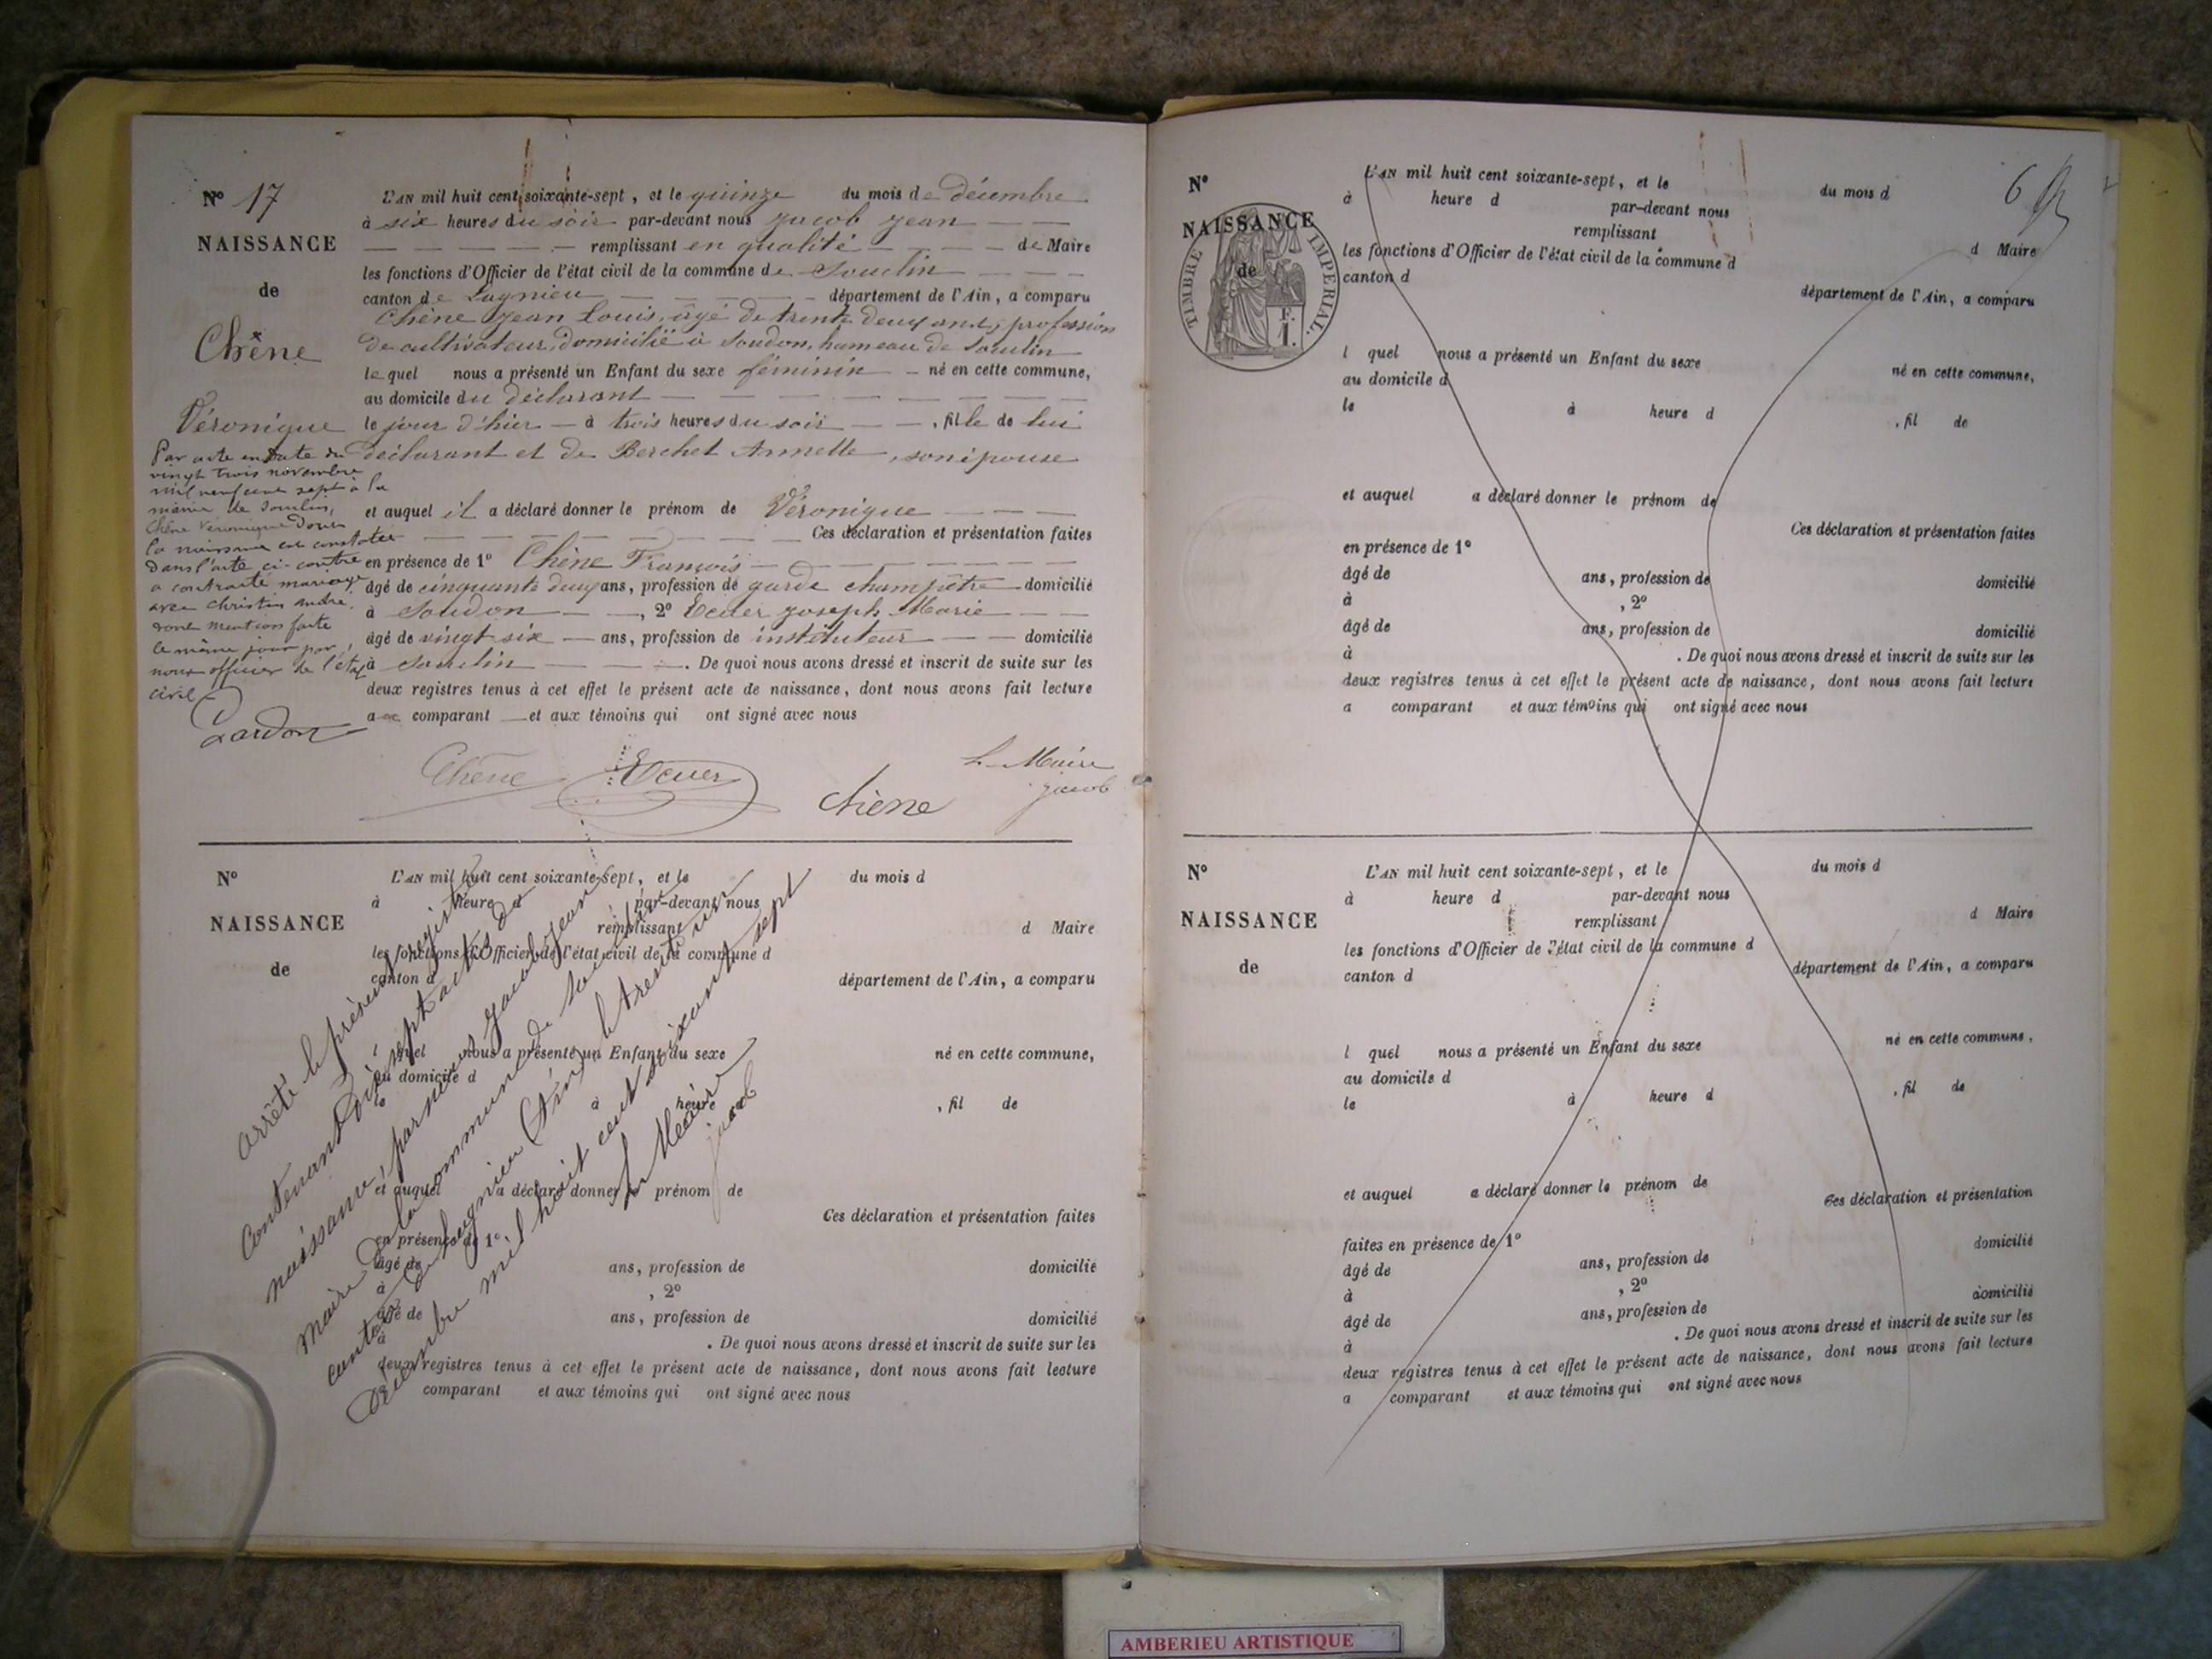 N° 17
NAISSANCE
de
Chêne
Véronique
L'AN mil huit cent soixante-sept, et le quinze du mois de décembre
à six heures du soir par-devant nous Jacob Jean
remplissant en qualité de Maire
les fonctions d'Officier de l'état civil de la commune de Souclin
canton de Lagnieu département de l'Ain, a comparu
Chêne Jean Louis, âgé de trente deux ans, profession
de cultivateur, domicilié à Soudon, hameau de Souclin
lequel nous a présenté un Enfant du sexe féminin né en cette commune,
au domicile du déclarant
le jour d'hier à trois heures du soir, fille de lui
déclarant et de Berchet Annette, son épouse
et auquel il a déclaré donner le prénom de Véronique
Ces déclaration et présentation faites
en présence de 1° Chêne François
âgé de cinquante deux ans, profession de garde champêtre domicilié
à Soudon, 2° Ecuer Joseph Marie
âgé de vingt six ans, profession de instituteur domicilié
à Souclin. De quoi nous avons dressé et inscrit de suite sur les
deux registres tenus à cet effet le présent acte de naissance, dont nous avons fait lecture
au comparant et aux témoins qui ont signé avec nous
Par acte en date du
vingt trois novembre
mil neuf cent sept à la
mairie de Souclin,
Chêne Véronique dont
la naissance est constatée
dans l'acte ci-contre
a contracté mariage
avec Christin André.
dont mention faite
le même jour par
nous officier de l'état
civil
Lardon
Chêne Ecuer chêne Le Maire
Jacob
N°
NAISSANCE
de
L'AN mil huit cent soixante-sept, et le du mois d
à heure d par-devant nous
remplissant d Maire
les fonctions d'Officier de l'état civil de la commune d
canton d département de l'Ain, a comparu
l quel nous a présenté un Enfant du sexe né en cette commune,
au domicile d
le à heure d, fil de
et auquel a déclaré donner le prénom de
Ces déclaration et présentation faites
en présence de 1°
âgé de ans, profession de domicilié
à, 2°
âgé de ans, profession de domicilié
à. De quoi nous avons dressé et inscrit de suite sur les
deux registres tenus à cet effet le présent acte de naissance, dont nous avons fait lecture
comparant et aux témoins qui ont signé avec nous
arrêté le présent registre
Contenant dix sept actes de
naissance, par nous Jacob Jean
maire de la commune de Souclin
canton de Lagnieu (Ain) le trente un
Décembre mil huit cent soixante sept
Le Maire
jacob
6
N°
NAISSANCE
de
TIMBRE IMPERIAL.
F.
1.
L'AN mil huit cent soixante-sept, et le du mois d
à heure d par-devant nous
remplissant d Maire
les fonctions d'Officier de l'état civil de la commune d
canton d département de l'Ain, a comparu
l quel nous a présenté un Enfant du sexe né en cette commune,
au domicile d
le à heure d, fil de
et auquel a déclaré donner le prénom de
Ces déclaration et présentation faites
en présence de 1°
âgé de ans, profession de domicilié
à, 2°
âgé de ans, profession de domicilié
à. De quoi nous avons dressé et inscrit de suite sur les
deux registres tenus à cet effet le présent acte de naissance, dont nous avons fait lecture
a comparant et aux témoins qui ont signé avec nous
N°
NAISSANCE
de
L'AN mil huit cent soixante-sept, et le du mois d
à heure d par-devant nous
remplissant d Maire
les fonctions d'Officier de l'état civil de la commune d
canton d département de l'Ain, a comparu
l quel nous a présenté un Enfant du sexe né en cette commune,
au domicile d
le à heure d, fil de
et auquel a déclaré donner le prénom de
Ces déclaration et présentation
faites en présence de 1°
âgé de ans, profession de domicilié
à, 2°
âgé de ans, profession de domicilié
à. De quoi nous avons dressé et inscrit de suite sur les
deux registres tenus à cet effet le présent acte de naissance, dont nous avons fait lecture
a comparant et aux témoins qui ont signé avec nous
AMBERIEU ARTISTIQUE